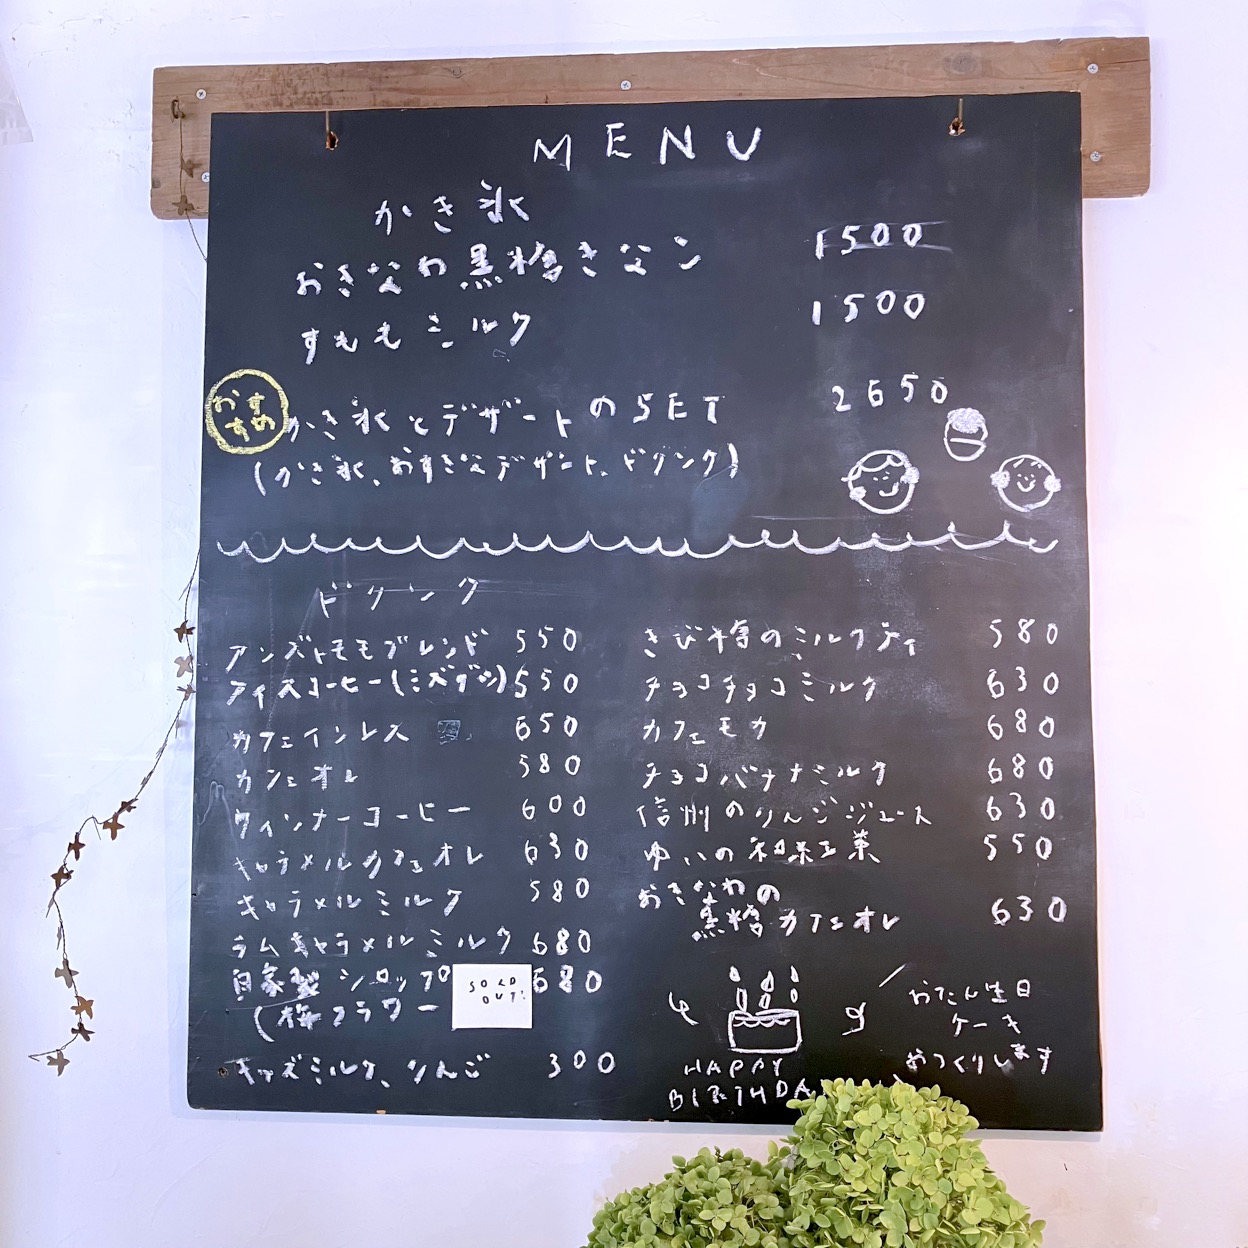 MENU
かき氷
おきなわ黒糖きなこ 1500
すももミルク 1500
おすすめ
かき氷とデザートのSET 2650
(かき氷、おすきなデザート、ドリンク)
ドリンク
アンズトモモブレンド 550
アイスコーヒー(ミズダシ) 550
カフェインレス 650
カフェオレ 580
ウィンナーコーヒー 600
キャラメルカフェオレ 630
キャラメルミルク 580
ラムキャラメルミルク 680
自家製シロップ 680
SOLD
OUT!
(梅フラワー
キッズミルク、りんご 300
きび糖のミルクティ 580
チョコチョコミルク 630
カフェモカ 680
チョコバナナミルク 680
信州のりんごジュース 630
ゆいの和紅茶 550
おきなわの
黒糖カフェオレ 630
HAPPY
BIRTHDA
おたん生日
ケーキ
おつくりします